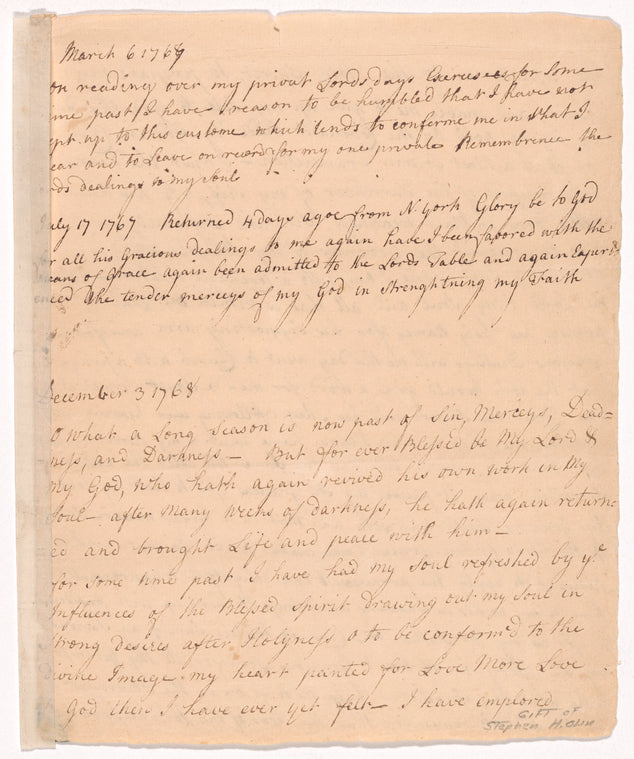 March 6 1767
on reading over my privat Lords days Exercises for some
ime past I have reason to be humbled that I have not
ept up to this custome which tends to conferme me in what I
ear and to Leave on record for my one private Remembrence the
ds dealings to my soul
uly 17 1767 Returned 4 days agoe from N york Glory be to God
r all his Gracious dealings to me again have I been favored with the
eans of Grace again been admitted to the Lords Table and again Experi
ced the tender mercys of my God in strenghtning my Faith
December 3 1768
O what a Long season is now past of Sin, Mercys, Dead=
ness, and Darkness — But for ever Blessed be My Lord &
My God, who hath again revived his own work in My
Soul — after Many weeks of darkness, he hath again return=
ed and brought Life and peace with him —
for some time past I have had my soul refreshed by ye
Influences of the Blessed spirit drawing out my soul in
strong desires after Holyness o to be conform'd to the
Divine Image my heart panted for Love More Love
God then I have ever yet felt — I have emplored
GIFT OF
Stephen H. Olin